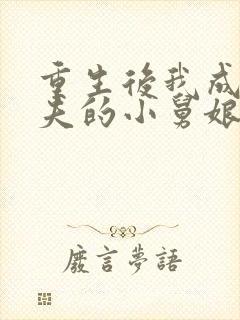 重生後我成
夫的小舅娘
廢言夢語